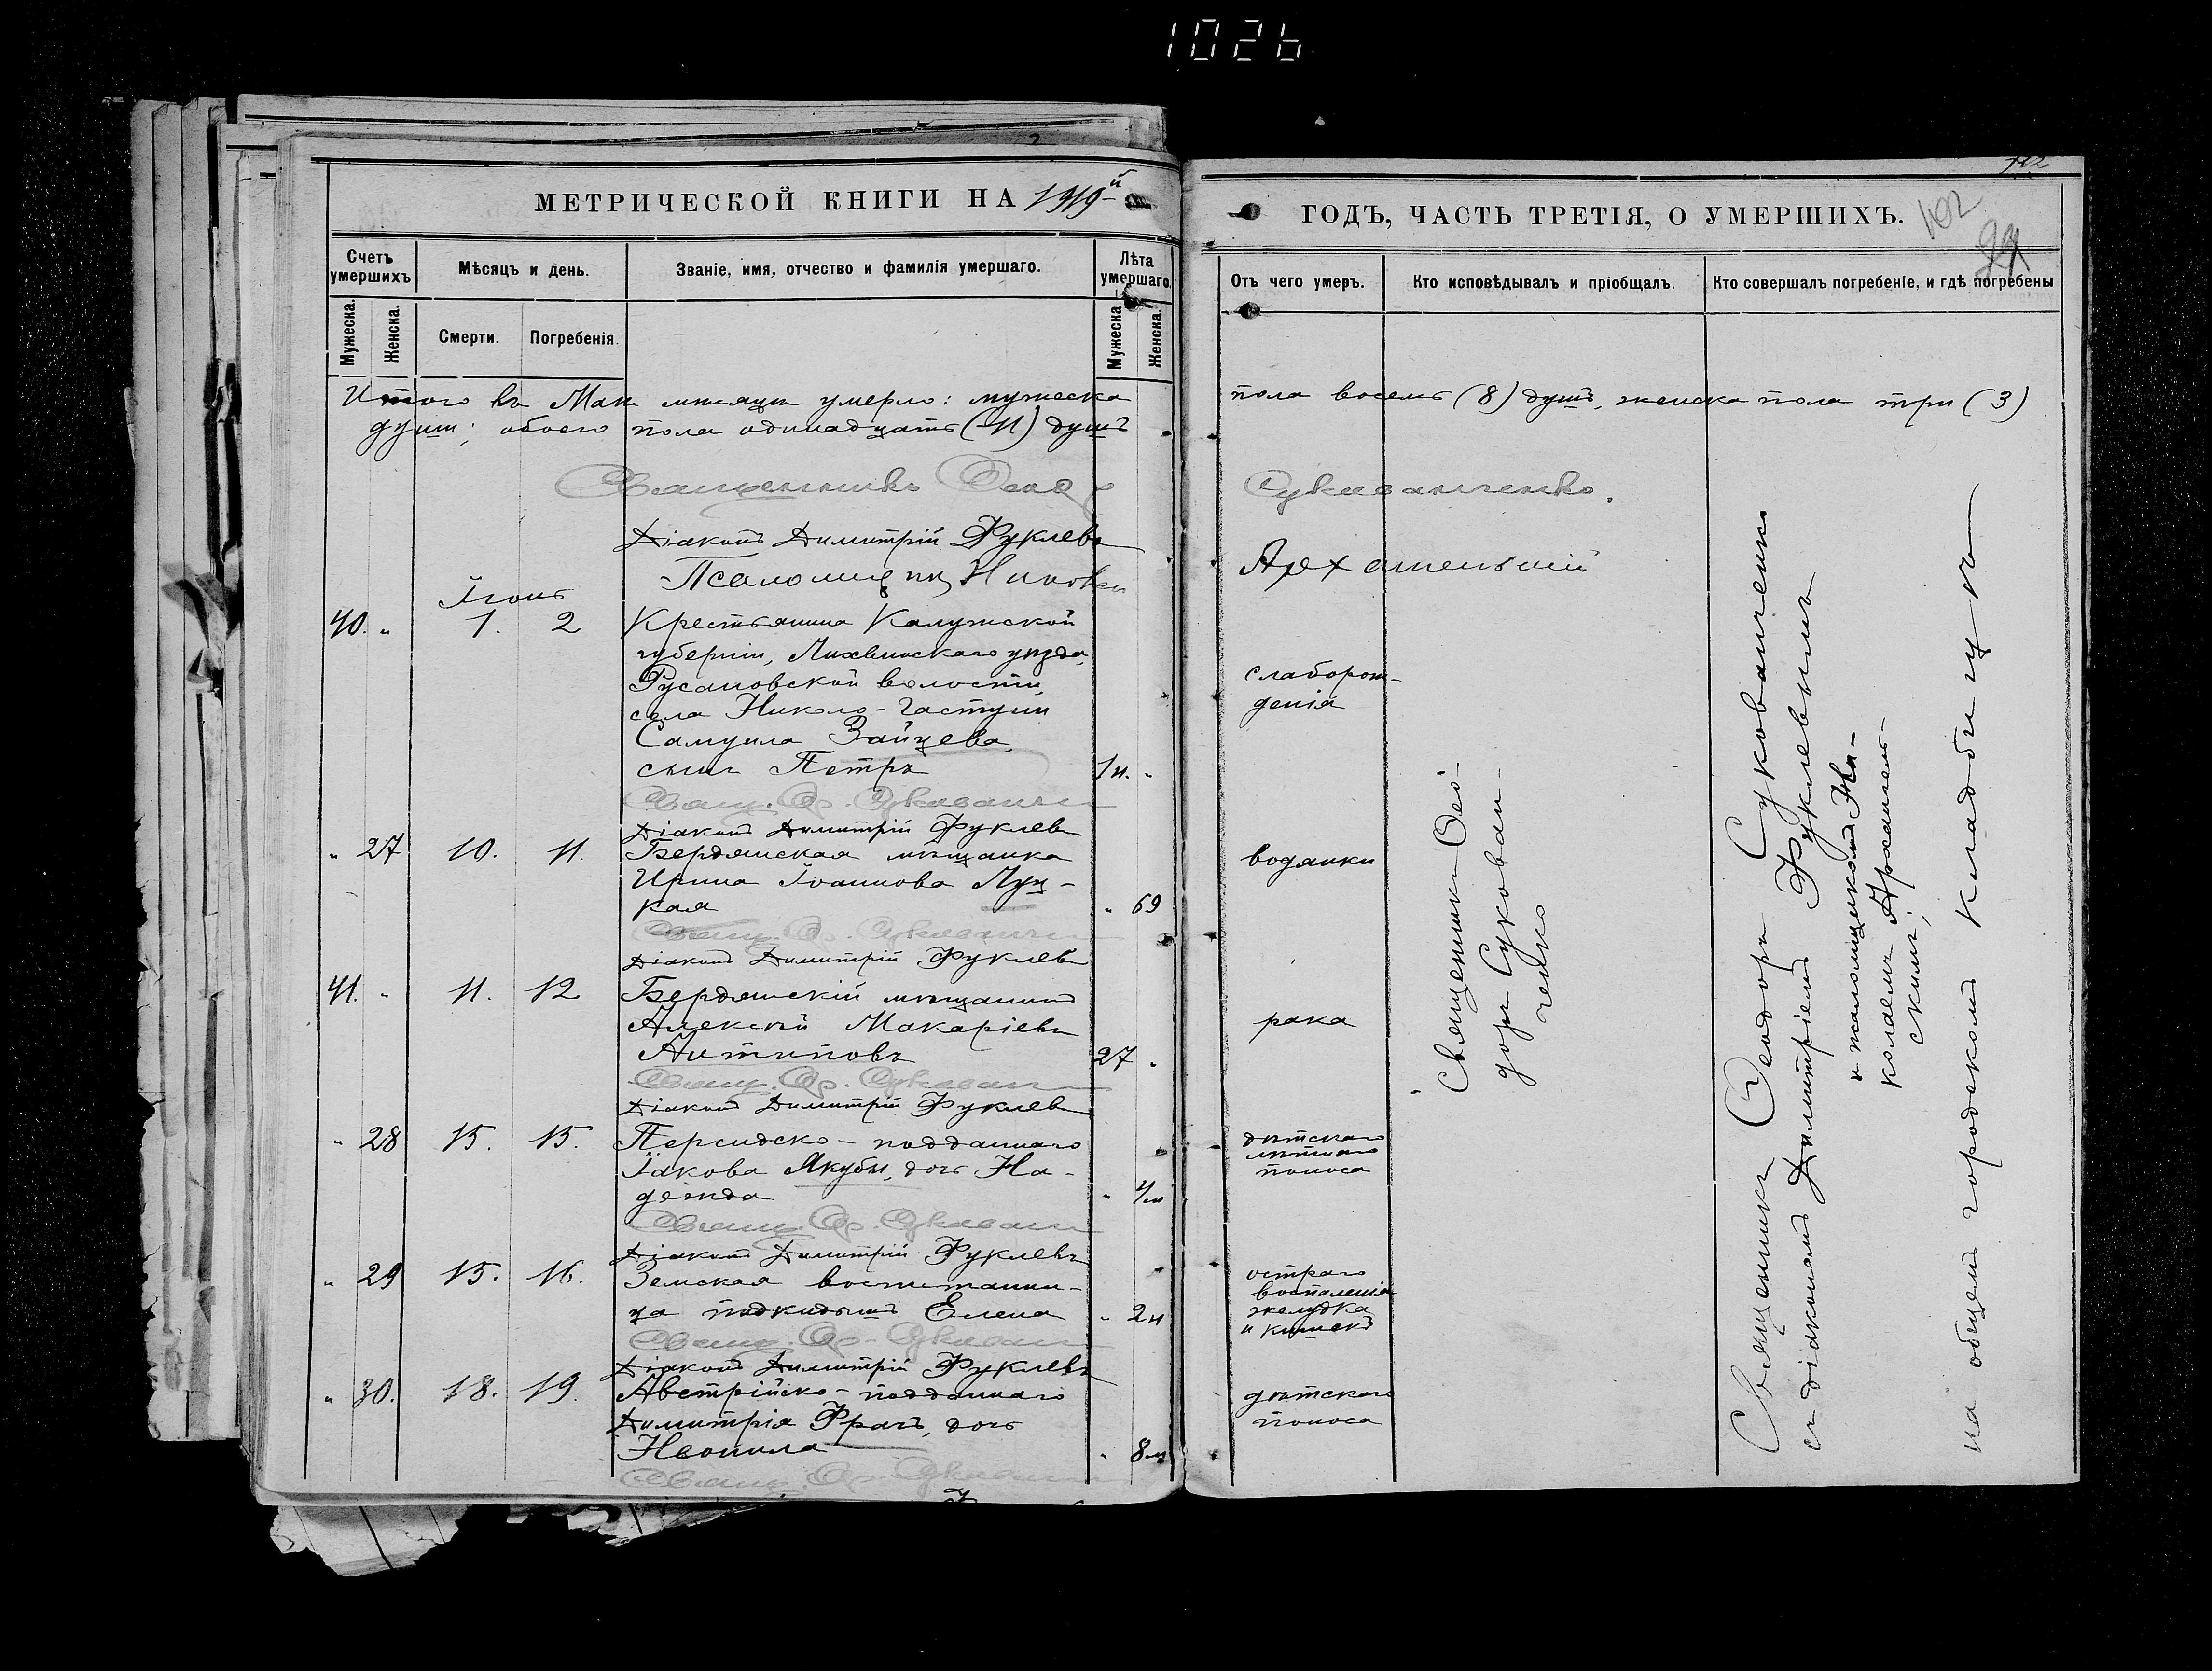 1026
МЕТРИЧЕСКОЙ КНИГИ НА 1919й
Счетъ умершихъ
Мѣсяцъ и день.
Званіе, имя, отчество и фамилія умершаго.
Лѣта умершаго.
Мужеска.
Женска.
Смерти.
Погребенія.
Мужеска.
Женска.
Итого въ Маѣ мѣсяцѣ умерло: мужеска
душъ; обоего пола одинадцать (11) душъ
Священникъ Ѳеод.
Діаконъ Димитрій Фуклевъ
Псаломщикъ Николай
Іюнь
40. " 1. 2 Крестьянина Калужской
губерніи, Лихвинскаго уѣзда,
Русановской волости,
села Николо-Гастуни
Самуила Зайцева,
сынъ Петръ 1н. "
Свящ. Ѳ. Сукованч
Діаконъ Димитрій Фуклевъ
" 27 10. 11. Бердянская мѣщанка
Ирина Іоаннова Луц-
кая " 69
Свящ. Ѳ. Сукованч
Діаконъ Димитрій Фуклевъ
41. " 11. 12 Бердянскій мѣщанинъ
Алексѣй Макаріевъ
Антиповъ 27 "
Свящ. Ѳ. Сукован
Діаконъ Димитрій Фуклев
" 28 15. 15. Персидско-подданнаго
Іакова Якубы, дочь На-
дежда " 4м
Свящ. Ѳ. Сукован
Діаконъ Димитрій Фуклевъ
" 29 15. 16. Земская воспитанни-
ца подкидышъ Елена " 2н
Свящ. Ѳ. Сукован
Діаконъ Димитрій Фуклевъ
" 30. 18. 19. Австрійско-подданнаго
Димитрія Фрачъ, дочь
Неонила " 8м
Свящ. Ѳ. Сукован
102
102
ГОДЪ, ЧАСТЬ ТРЕТІЯ, О УМЕРШИХЪ.
Отъ чего умеръ.
Кто исповѣдывалъ и пріобщалъ.
Кто совершалъ погребеніе, и гдѣ погребены
пола восемь (8) душъ, женска пола три (3)
Сукованченко.
Архангельскій
слаборож-
денія
водянки
рака
дѣтскаго
лѣтняго
поноса
остраго
воспаленія
желудка
и кишекъ
дѣтскаго
поноса
Священникъ Ѳео-
доръ Сукован-
ченко
Священникъ Ѳеодоръ Сукованченко
съ діакономъ Димитріемъ Фуклевымъ
и псаломщикомъ Ни-
колаемъ Архангель-
скимъ;
на общемъ городскомъ кладбищѣ